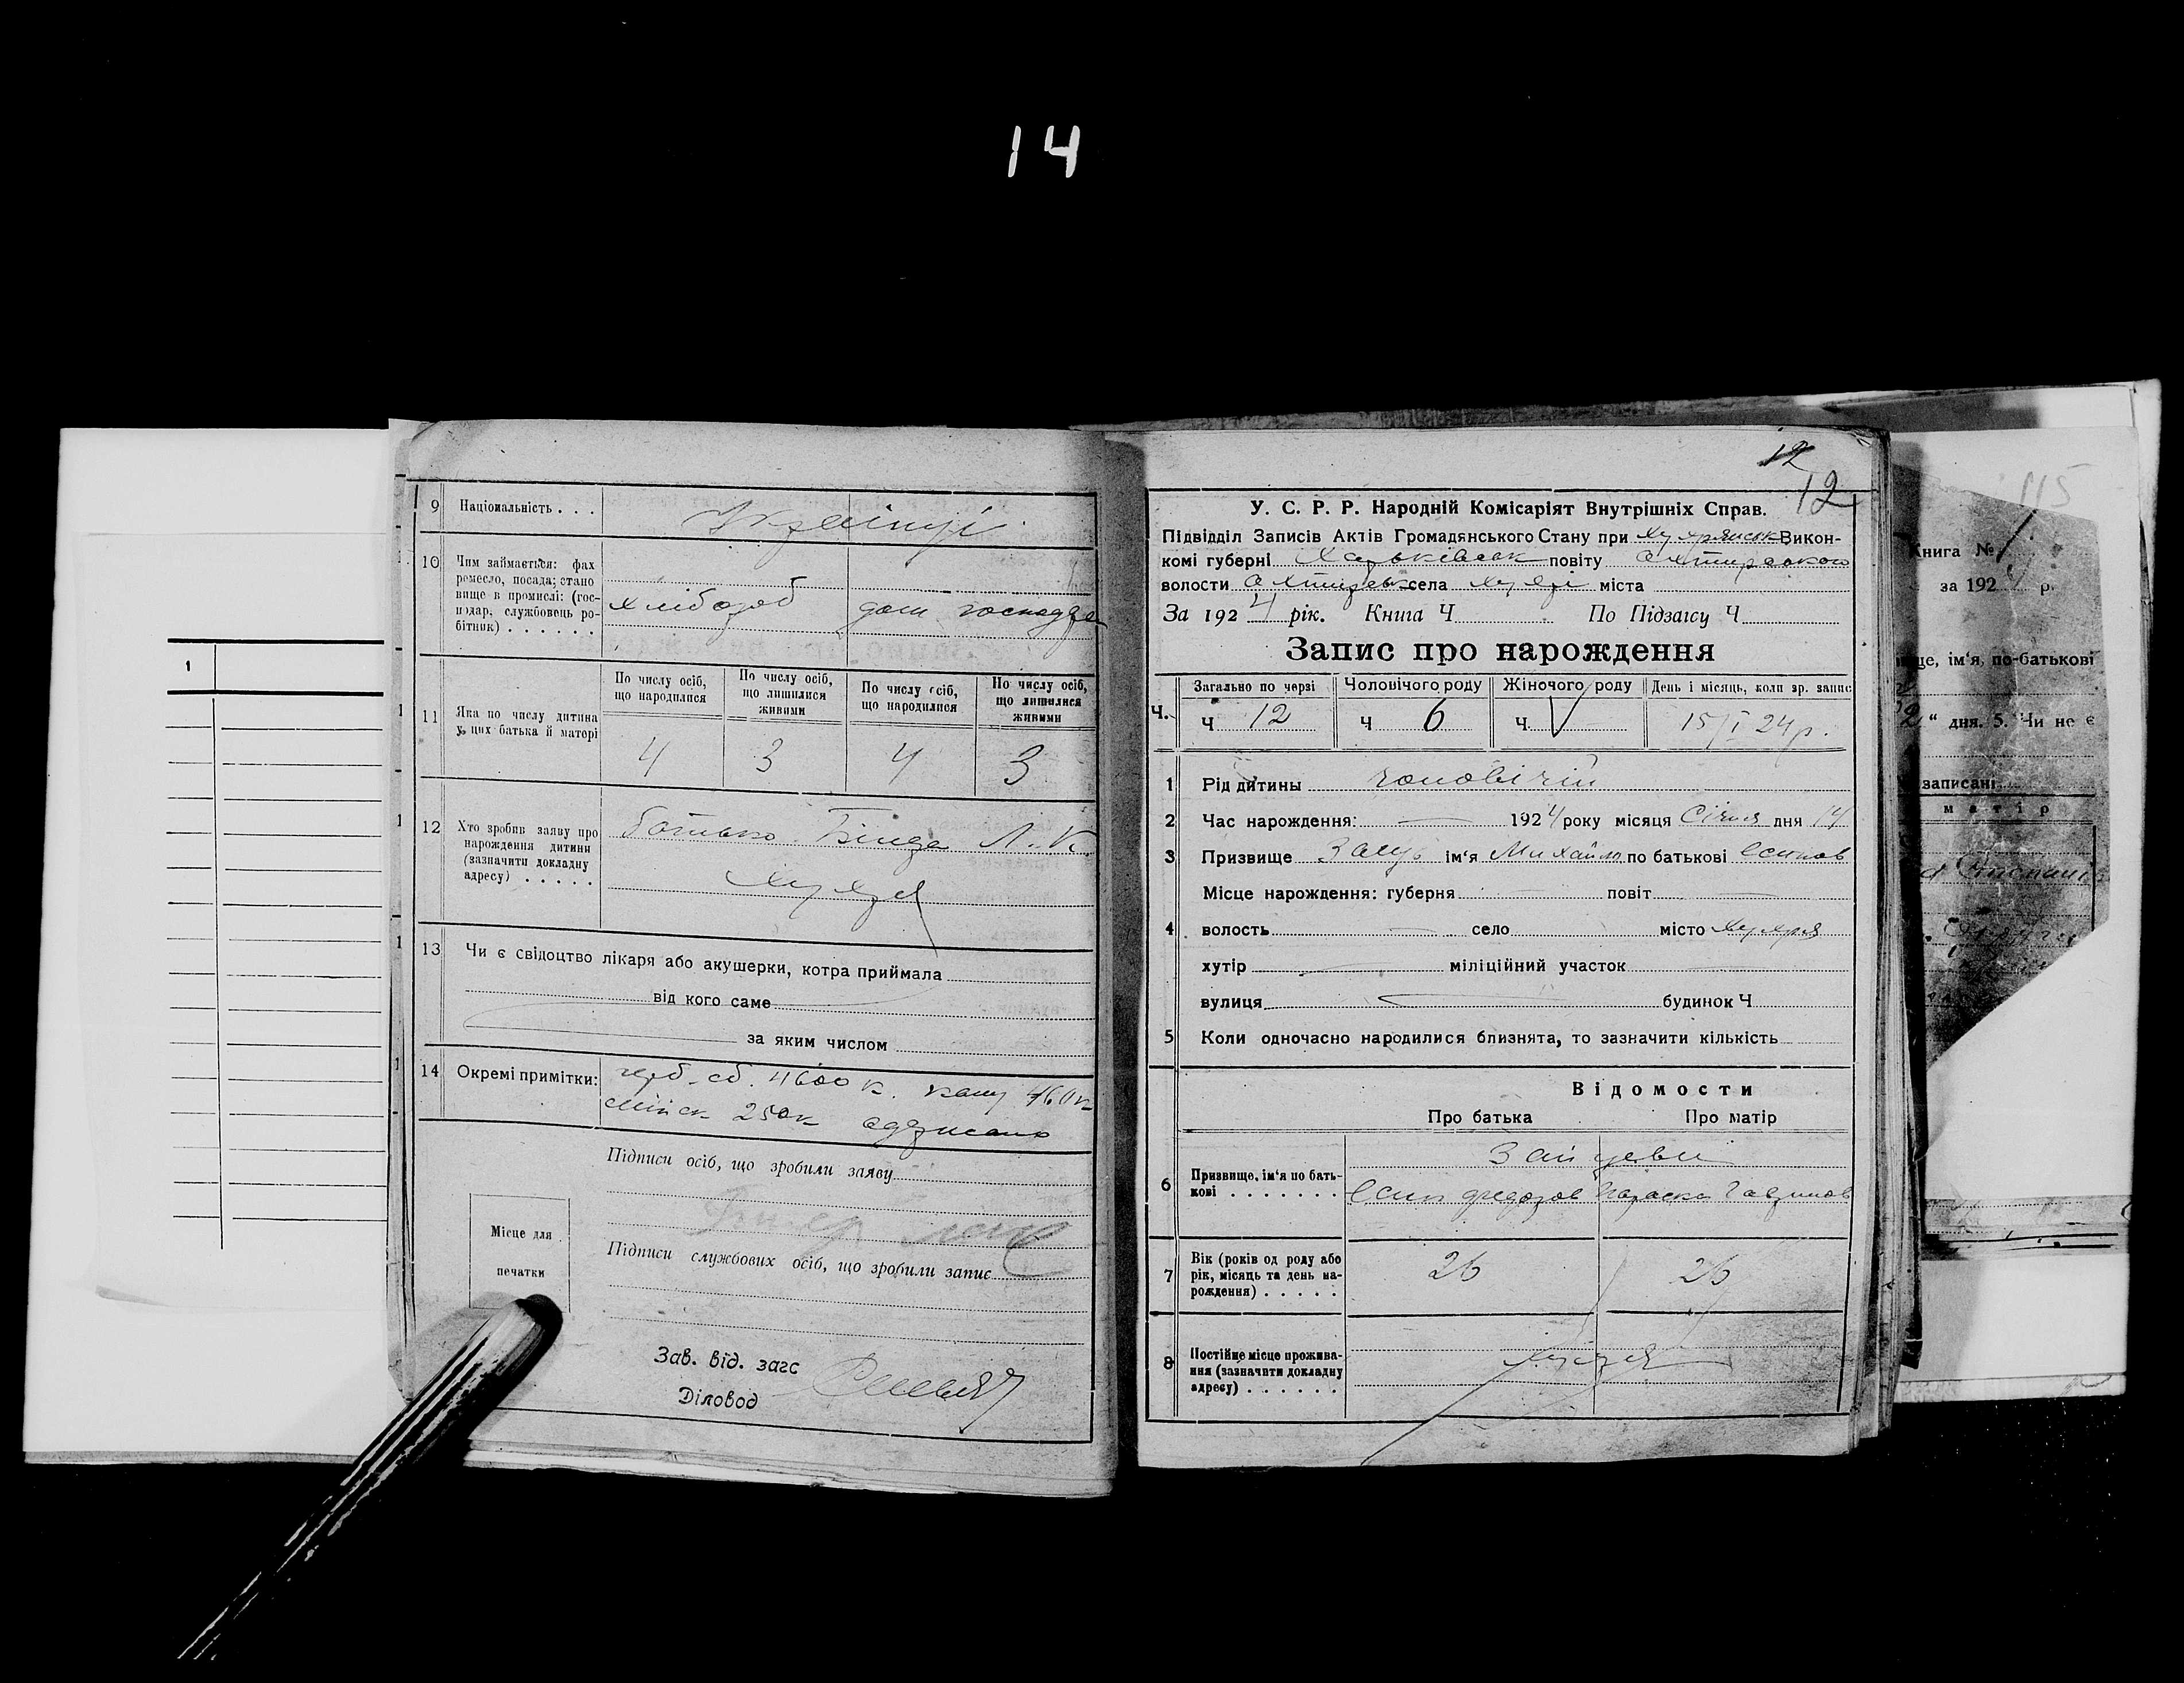 14
1
9 Національність . . . Українці
10 Чим займається: фах
ремесло, посада; стано
вище в промислі: (гос-
подар, службовець ро-
бітник) . . . . . .
хлібороб дом господар
По числу осіб,
що народилися
По числу осіб,
що лишилися
живими
По числу осіб,
що народилися
По числу осіб,
що лишилися
живими
11 Яка по числу дитина
у цих батька й матері
4 3 4 3
12 Хто зробив заяву про
нарождення дитини
(зазначити докладну
адресу) . . . . .
батько Л. К.
Хухря
13 Чи є свідоцтво лікаря або акушерки, котра приймала
від кого саме
за яким числом
14 Окремі примітки:
герб. сб. 4600 к. канц 460 к
250к одержано
Підписи осіб, що зробили заяву
Місце для
печатки
Підписи службових осіб, що зробили запис
Зав. від. загс
Діловод
12
12
У. С. Р. Р. Народній Комісаріят Внутрішніх Справ.
Підвідділ Записів Актів Громадянського Стану при Хухрянськ Викон-
комі губерні Харьківськ повіту Охтирського
волости Охтирськ села Хухрі міста
За 1924 рік. Книга Ч По Підзагсу Ч
Запис про нарождення
Ч. Загально по черзі Чоловічого роду Жіночого роду День і місяць, коли зр. запис
Ч 12 Ч 6 Ч. 15/I 24 р.
1 Рід дитини чоловічій
2 Час нарождення: 1924 року місяця Січня дня 14
3 Призвище ім'я Михайло по батькові Осипов
Місце нарождення: губерня повіт
4 волость село місто Хухря
хутір міліційний участок
вулиця будинок Ч
5 Коли одночасно народилися близнята, то зазначити кількість
Відомости
Про батька Про матір
Зайцеви
6 Призвище, ім'я по бать-
кові . . . . . . .
Осип Федоров Параска Гаврилов
7 Вік (років од роду або
рік, місяць та день на-
рождення) . . . . .
26 26
8 Постійне місце прожива-
ння (зазначити докладну
адресу) . . . . . .
Хухря
115
Книга № 1
за 1924 р.
ще, ім'я, по-батькові
2" дня. 5. Чи не є
записані
матір